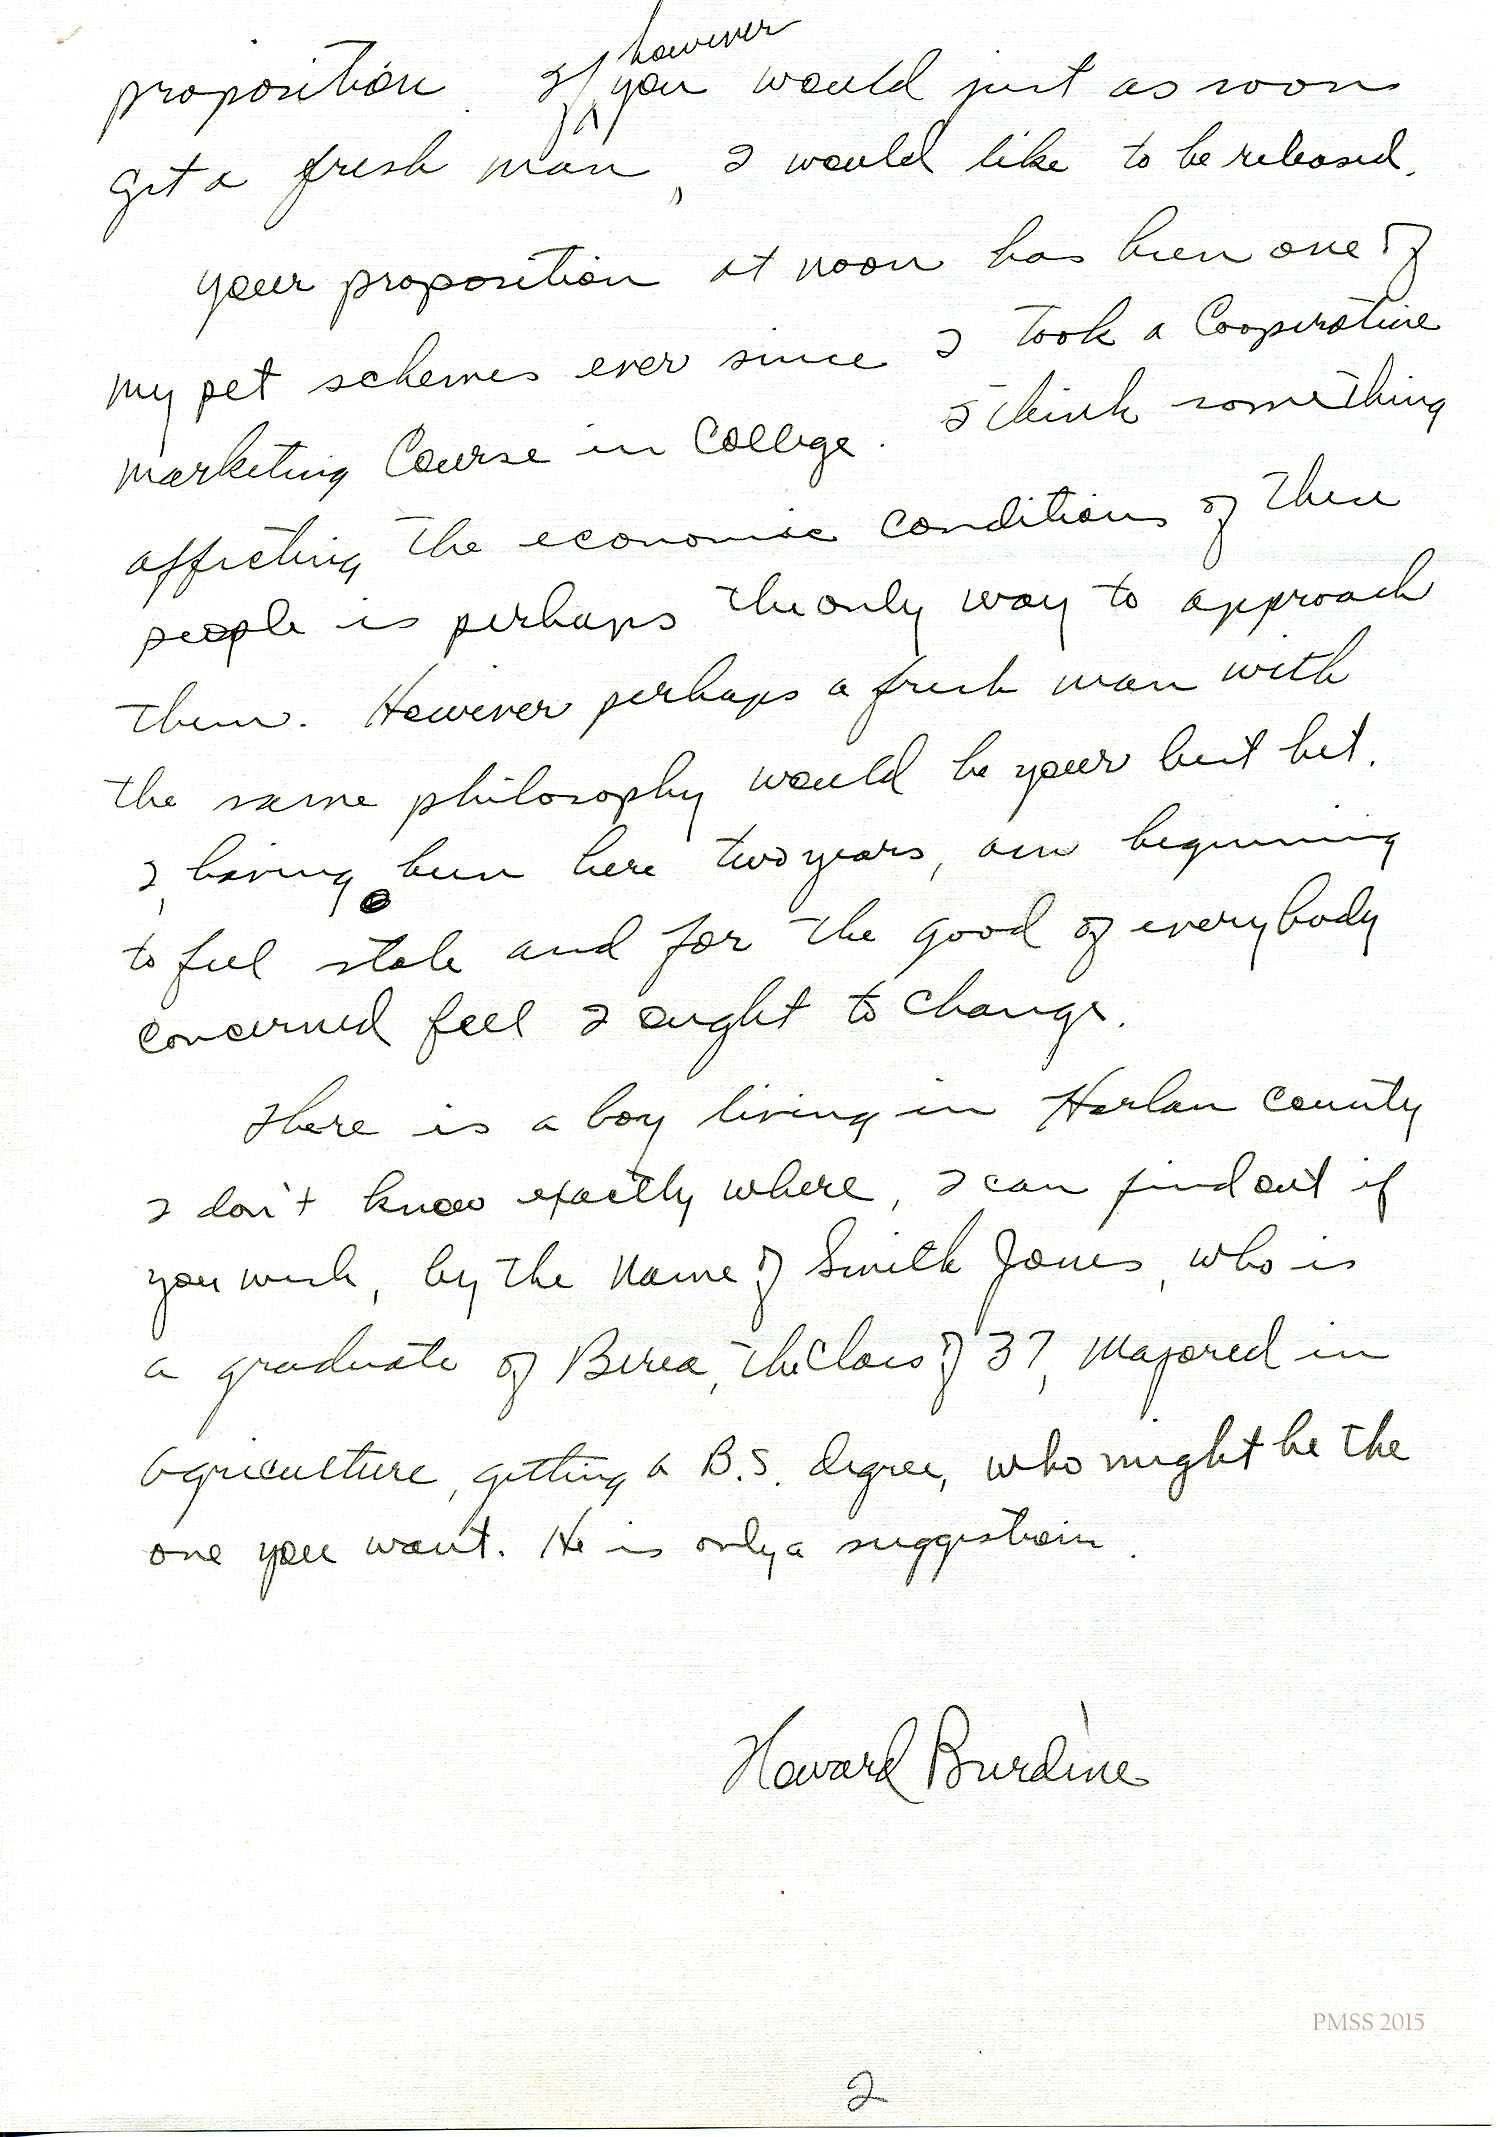 proposition. If however you would just as soon
get a fresh man, I would like to be released.
your proposition at noon has been one of
my pet schemes ever since I took a Cooperative
marketing Course in College. I think something
affecting the economic conditions of these
people is perhaps the only way to approach
them. However perhaps a fresh man with
the same philosophy would be your best bet.
I, having been here two years, am beginning
to feel stale and for the good of everybody
concerned feel I ought to change.
There is a boy living in Harlan County
I don't know exactly where, I can find out if
you wish, by the name of Smith Jones, who is
a graduate of Berea, the Class of 37, majored in
agriculture, getting a B.S. degree, who might be the
one you want. He is only a suggestion.
Howard Burdine
PMSS 2015
2